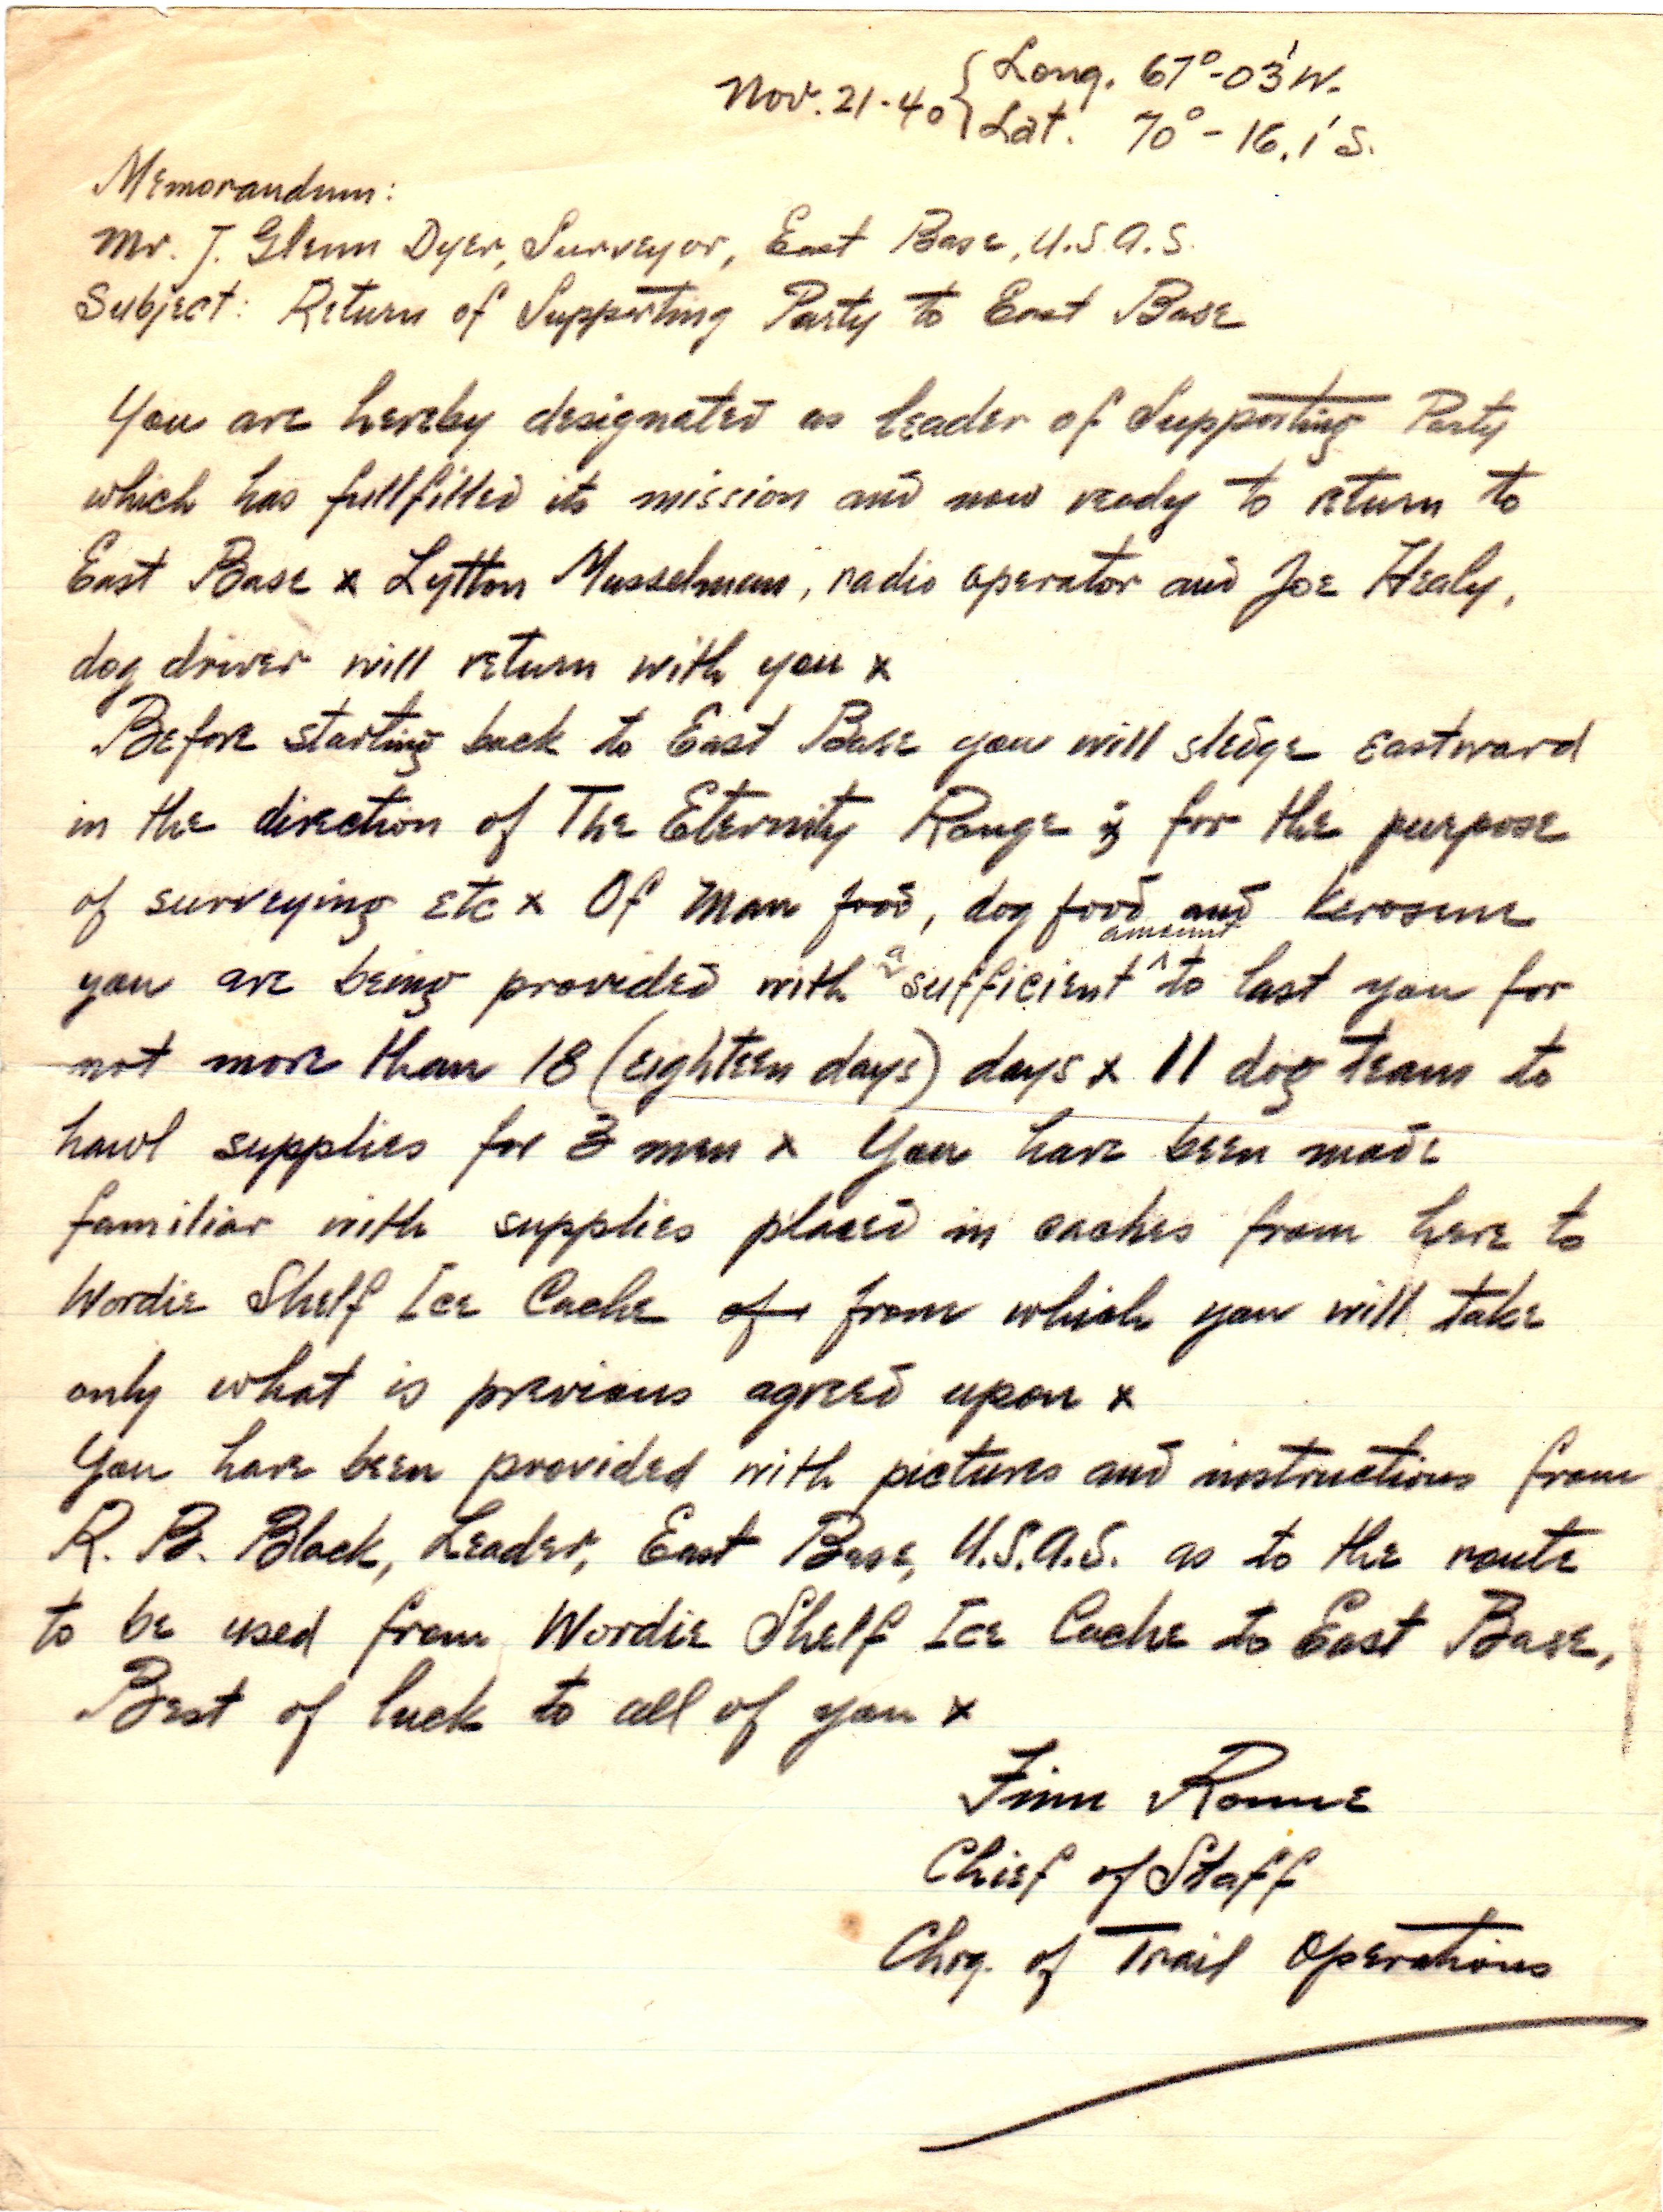 Nov. 21-40 { Long. 67°-03' W.
Lat. 70°-16.1' S.
Memorandum:
Mr. J. Glenn Dyer, Surveyor, East Base, U.S.A.S.
Subject: Return of Supporting Party to East Base
You are hereby designated as leader of Supporting Party
which has fullfilled its mission and now ready to return to
East Base x Lytton Musselman, radio operator and Joe Healy,
dog driver will return with you x
Before starting back to East Base you will sledge eastward
in the direction of The Eternity Range for the purpose
of surveying etc x Of man food, dog food and kerosene
you are being provided with a sufficient ^amount to last you for
not more than 18 (eighteen days) days x 11 dog team to
hawl supplies for 3 men x You have been made
familiar with supplies placed in caches from here to
Wordie Shelf Ice Cache of from which you will take
only what is previous agreed upon x
You have been provided with pictures and instructions from
R. B. Black, Leader, East Base, U.S.A.S. as to the route
to be used from Wordie Shelf Ice Cache to East Base,
Best of luck to all of you x
Finn Ronne
Chief of Staff
Chrg. of Trail Operations